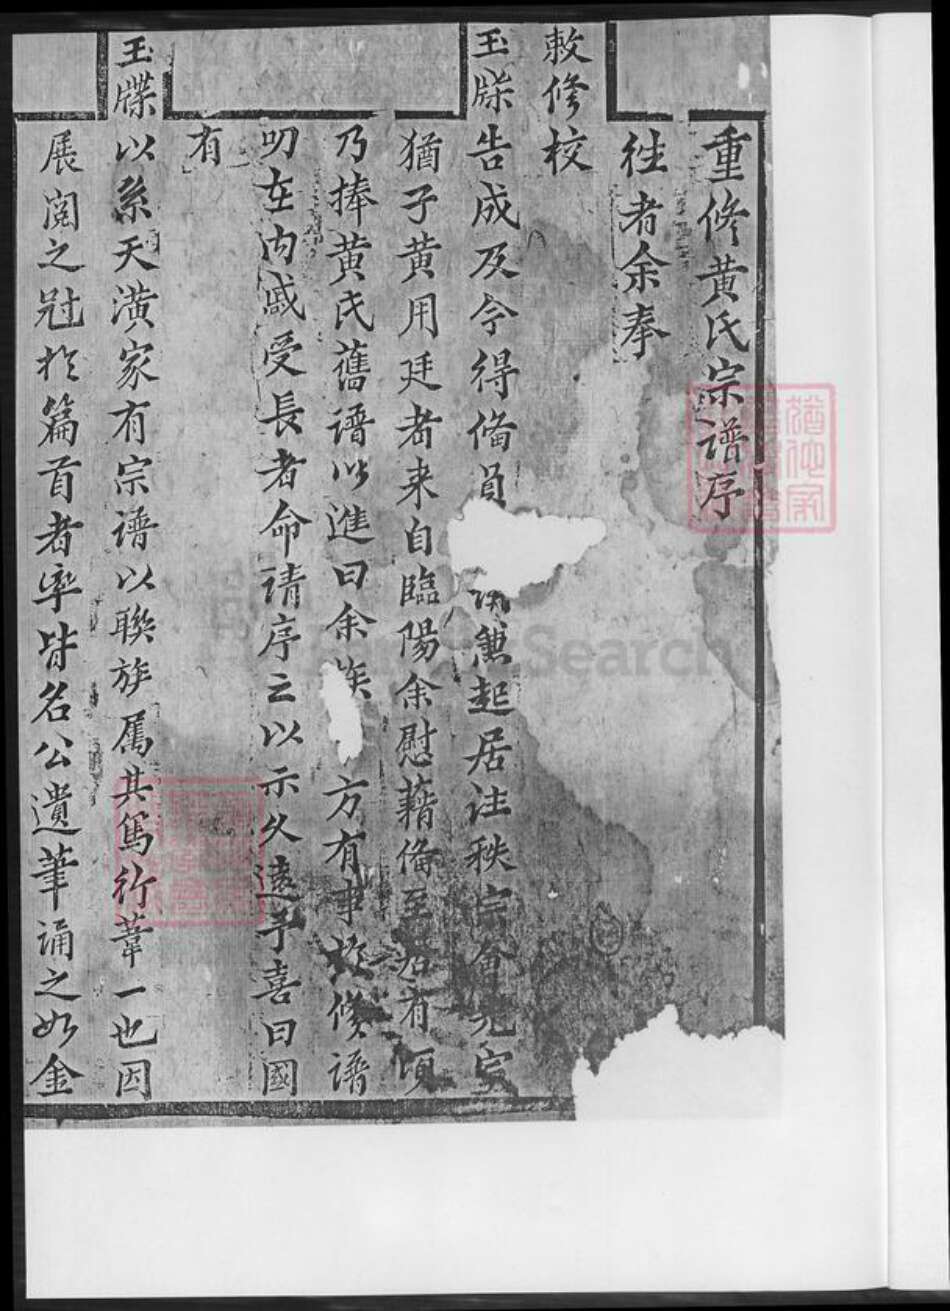 重修黃氏宗譜序
徃者余奉
敕修校
玉牒告成及今得俻員 兼起居注秩宗
猶子黃用廷者来自臨陽余慰藉俻至居有頃
乃捧黃氏舊譜以進曰余族 方有事於修譜
叨在内戚受長者命請序之以示久遠予喜曰國
有
玉牒以系天潢家有宗譜以聯族属其篤行葦一也因
展閲之冠扵篇首者率皆名公遺筆誦之如金
Search